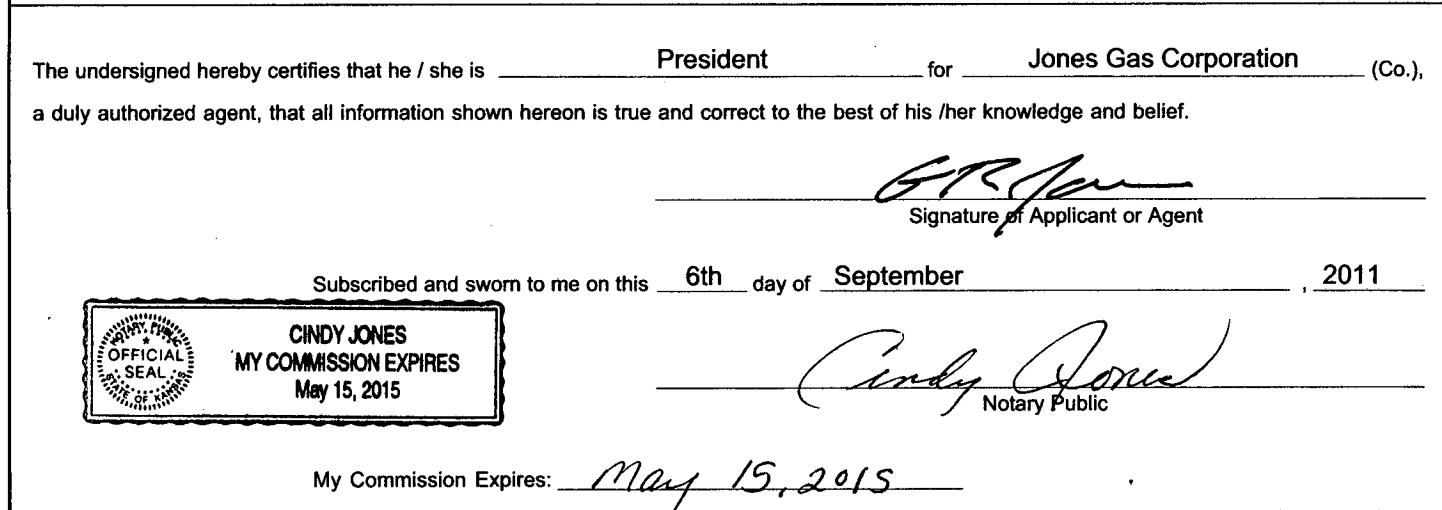 The undersigned hereby certifies that he / she is President for Jones Gas Corporation (Co.),
a duly authorized agent, that all information shown hereon is true and correct to the best of his /her knowledge and belief.
GR Jones
Signature of Applicant or Agent
Subscribed and sworn to me on this 6th day of September , 2011
NOTARY PUBLIC
OFFICIAL
SEAL
STATE OF KANSAS
CINDY JONES
MY COMMISSION EXPIRES
May 15, 2015
Cindy Jones
Notary Public
My Commission Expires: May 15, 2015